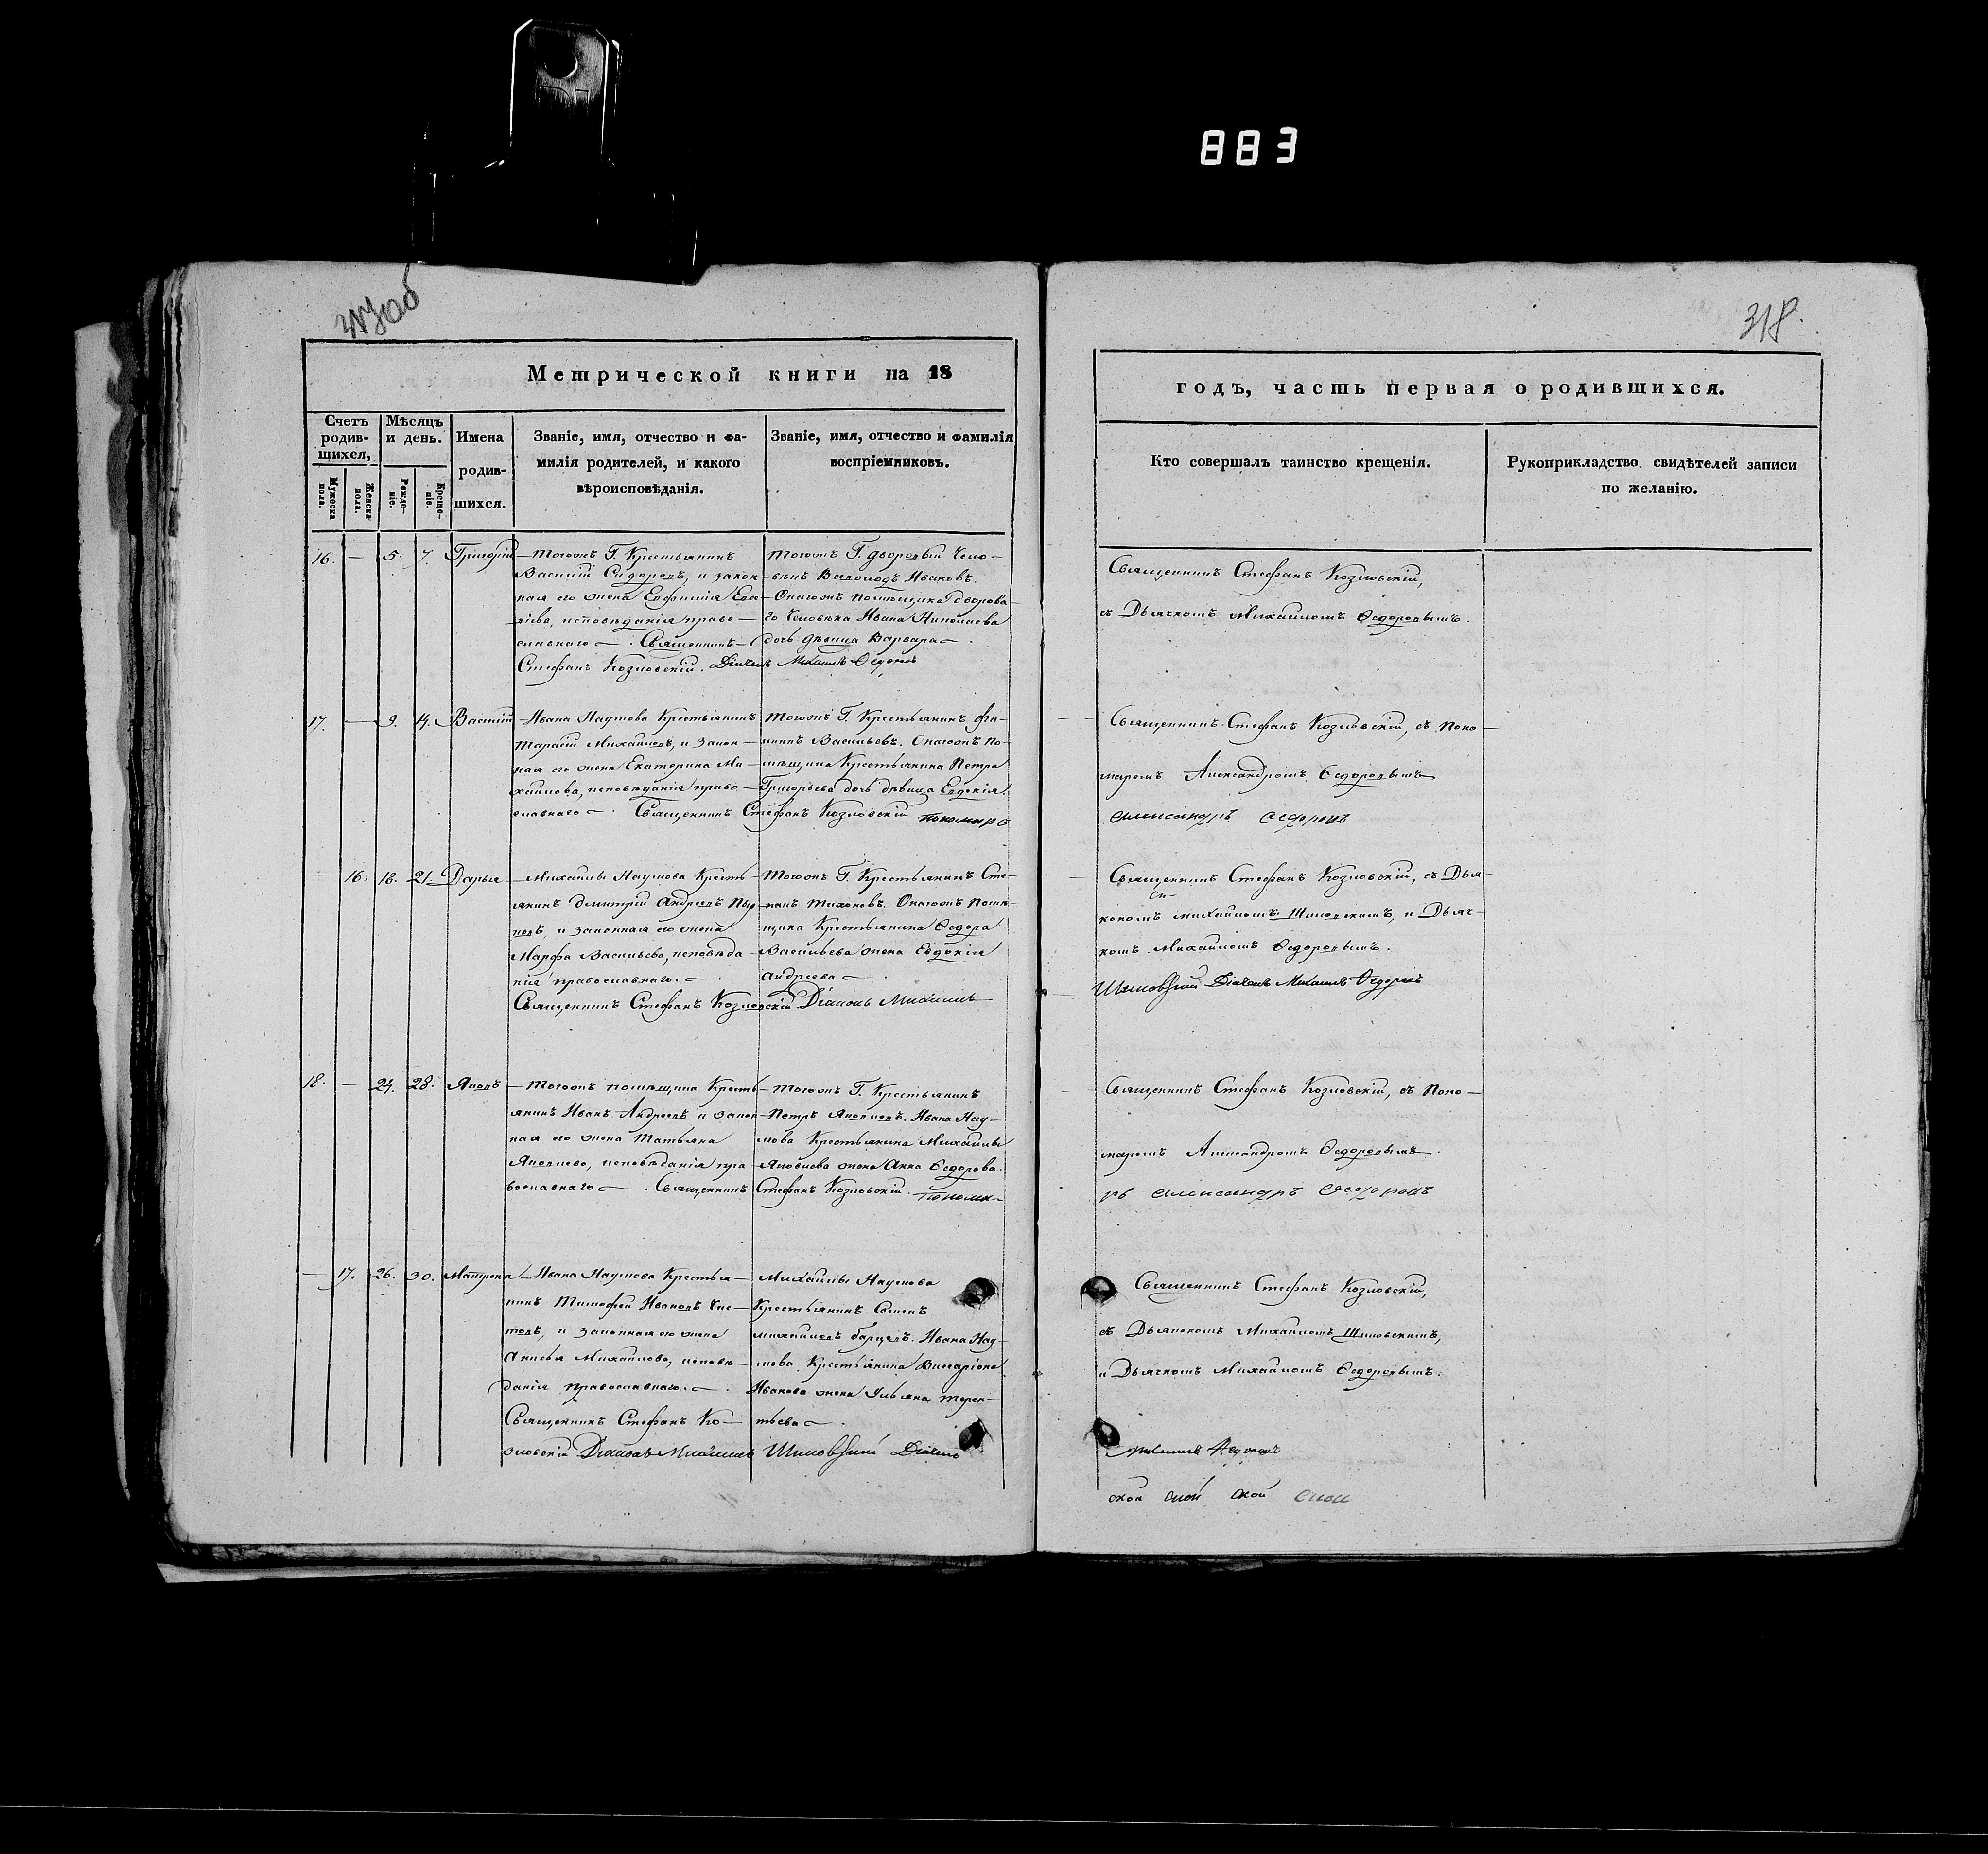 883
318.
Метрической книги на 18
годъ, часть первая о родившихся.
Счетъ родив-
шихся,
Мужеска пола.
Женска пола.
Мѣсяцъ и день.
Рожде-
ніе.
Креще-
ніе.
Имена
родив-
шихся.
Званіе, имя, отчество и фа-
милія родителей, и какого
вѣроисповѣданія.
Званіе, имя, отчество и фамилія
воспріемниковъ.
Кто совершалъ таинство крещенія.
Рукоприкладство свидѣтелей записи
по желанію.
16. — 5. 7. Григорій
Тогожъ Г. Крестьянинъ
Василій Сидоровъ, и закон-
ная его жена Евфимія
исповѣданія право-
славнаго. Священникъ
Стефанъ Козловскій. Дьячекъ Михаилъ Ѳедоровъ
Тогожъ Г. дворовый Чело-
вѣкъ Ивановъ.
Онагожъ помѣщика дворова-
го Человѣка Ивана Николаева
дочь дѣвица Варвара.
Священникъ Стефанъ Козловскій,
съ Дьячкомъ Михаиломъ Ѳедоровымъ.
17. — 9. 14. Василій
Ивана Наумова Крестьянинъ
Тарасій Михайловъ, и закон-
ная его жена Екатерина Ми-
хайлова, исповѣданія право-
славнаго. Священникъ Стефанъ Козловскій Пономарь
Тогожъ Г. Крестьянинъ Фи-
липъ Васильевъ. Онагожъ по-
мѣщика Крестьянина Петра
Григорьева дочь дѣвица Евдокія.
Священникъ Стефанъ Козловскій, съ Поно-
маремъ Александромъ Ѳедоровымъ
Александръ Ѳедоровъ
— 16. 18. 21. Дарья
Михайлы Наумова Кресть-
янинъ Димитрій Андреевъ
и законная его жена
Марфа Васильева, исповѣда-
нія православнаго.
Священникъ Стефанъ Козловскій Діаконъ Михаилъ
Тогожъ Г. Крестьянинъ Сте-
панъ Тихоновъ. Онагожъ помѣ-
щика Крестьянина Ѳедора
Васильева жена Евдокія
Андреева.
Священникъ Стефанъ Козловскій, съ Дья-
кономъ Михаиломъ Шиповскимъ, и Дьяч-
комъ Михаиломъ Ѳедоровымъ.
Шиповскій Дьячекъ Михаилъ Ѳедоровъ
18. — 24. 28. Яковъ
Тогожъ помѣщика Кресть-
янинъ Иванъ Андреевъ и закон-
ная его жена Татьяна
Яковлева, исповѣданія пра-
вославнаго. Священникъ Стефанъ Козловскій. Понома-
Тогожъ Г. Крестьянинъ
Петръ Яковлевъ. Ивана Нау-
мова Крестьянина Михайлы
Яковлева жена Анна Ѳедорова.
Священникъ Стефанъ Козловскій, съ Поно-
маремъ Александромъ Ѳедоровымъ.
рь Александръ Ѳедоровъ
— 17. 26. 30. Матрона
Ивана Наумова Крестья-
нинъ Тимофей Ивановъ Чис-
товъ, и законная его жена
Анисья Михайлова, исповѣ-
данія православнаго.
Священникъ Стефанъ Ко-
зловскій Діаконъ Михаилъ Шиповскій Дьячекъ
Михайлы Наумова
Крестьянинъ Семенъ
Михайловъ. Ивана Нау-
мова Крестьянина Виссаріона
Иванова жена Ульяна Терен-
тьева.
Священникъ Стефанъ Козловскій,
съ Дьякономъ Михаиломъ Шиповскимъ,
и Дьячкомъ Михаиломъ Ѳедоровымъ.
Михаилъ Ѳедоровъ